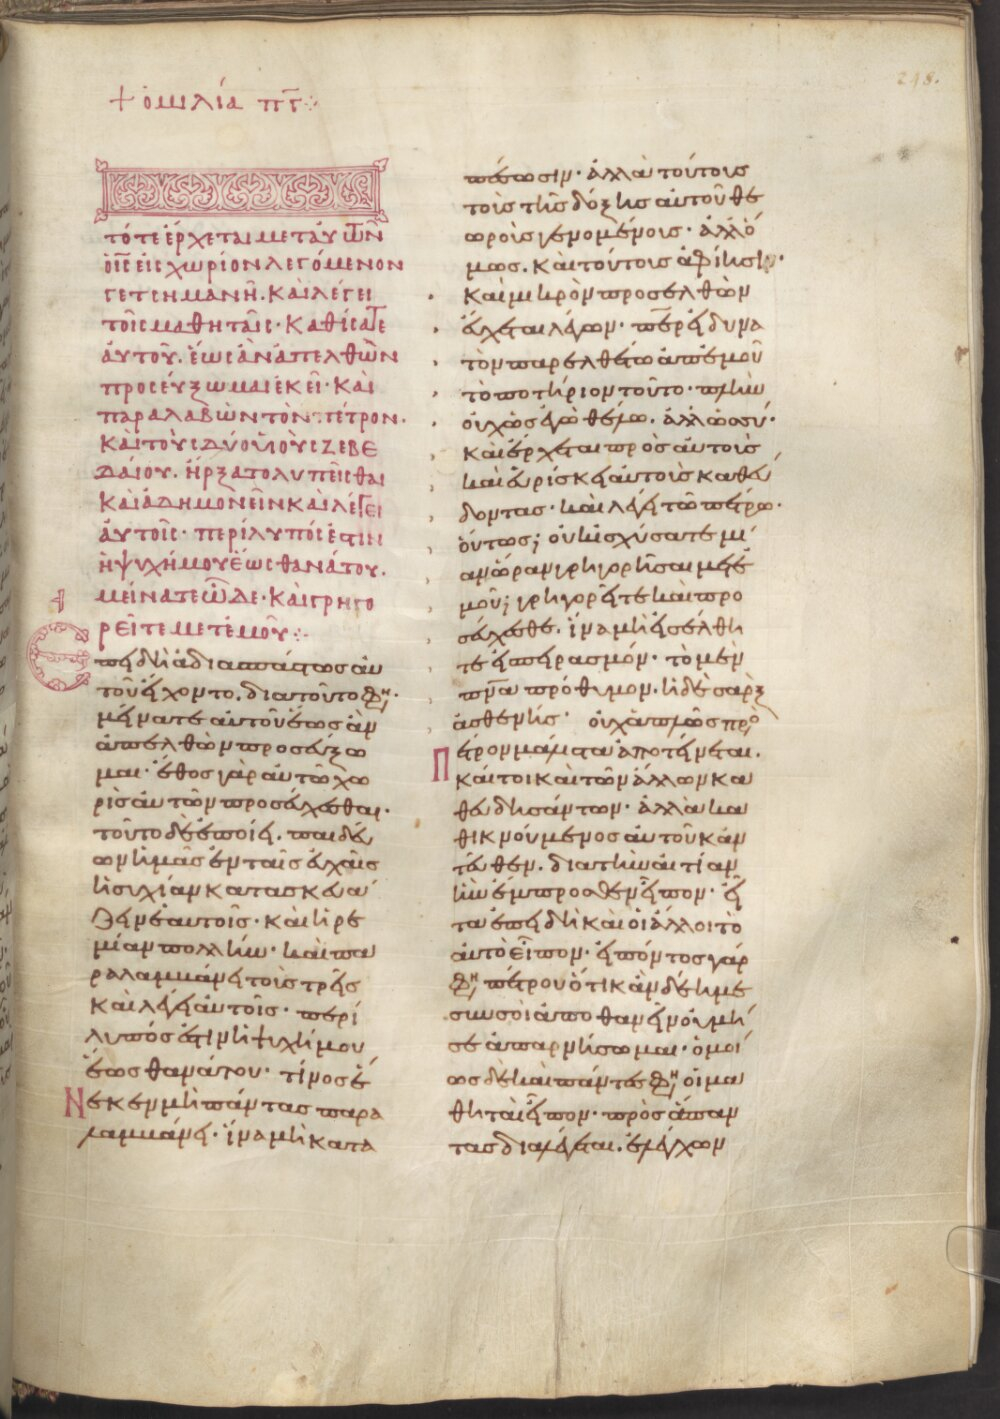 248.
+ ὁμιλία πγ:
τότε ἔρχεται μετ' αὐτῶν
ὁ ις εἰς χωρίον λεγόμενον
γετσημανῆ. καὶ λέγει
τοῖς μαθηταῖς· καθίσατε
αὐτοῦ. ἕως ἂν ἀπελθὼν
προσεύξωμαι ἐκεῖ· καὶ
παραλαβὼν τὸν πέτρον.
καὶ τοὺς δύο υἱοὺς ζεβε
δαίου. ἤρξατο λυπεῖσθαι
καὶ ἀδημονεῖν καὶ λέγει
αὐτοῖς· περίλυπός ἐστιν
ἡ ψυχή μου ἕως θανάτου.
μείνατε ὧδε· καὶ γρηγο
ρεῖτε μετ' ἐμοῦ:
Ἐπειδὴ ἀδιασπάστως αὐ
τοῦ εἴχοντο. διατοῦτο φη·
μείνατε αὐτοῦ ἕως ἂν
ἀπελθὼν προσεύξω
μαι· ἔθος γὰρ αὐτῶ χω
ρὶς αὐτῶν προσεύχεσθαι.
τοῦτο δὲ ἐποίει. παιδεύ
ων ἡμᾶς ἐν ταῖς εὐχαῖς
ἡσυχίαν κατασκευά
ζειν ἑαυτοῖς· καὶ ἠρε
μίαν πολλήν· καὶ πα
ραλαμμάνει τοὺς τρεῖς
καὶ λέγει αὐτοῖς· περί
λυπός ἐστιν ἡ ψυχή μου
ἕως θανάτου· τίνος ἕ
Νεκεν μὴ πάντας παρα
λαμμάνει· ἵνα μὴ κατα
πέσωσιν· ἀλλὰ τούτους
τοὺς τῆς δόξης αὐτοῦ θε
ωροὺς γενομένους· ἀλλ' ὅ
μως. καὶ τούτους ἀφίησιν·
καὶ μικρὸν προσελθὼν
εὔχεται λέγων· περ εἰ δυνα
τὸν παρελθέτω ἀπ' ἐμοῦ
τὸ ποτήριον τοῦτο· πλὴν
οὐχ ὡς ἐγὼ θέλω. ἀλλ' ὡς σύ·
καὶ ἔρχεται πρὸς αὐτοὺς
καὶ εὑρίσκει αὐτοὺς καθεύ
δοντας· καὶ λέγει τῶ πέτρω·
οὕτως; οὐκ ἰσχύσατε μί
αν ὥραν γρηγορῆσαι μετ' ἐ
μοῦ; γρηγορεῖτε καὶ προ
σεύχεσθε. ἵνα μὴ εἰσέλθη
τε εἰς πειρασμόν· τὸ μὲν
πνα πρόθυμον. ἡ δὲ σὰρξ
ἀσθενής· οὐχ ἁπλῶς πρὸς
Πέτρον μάλιστα ἀποτείνεται.
καίτοι καὶ τῶν ἄλλων κα
θευδησάντων· ἀλλὰ κα
θικνούμενος αὐτοῦ κἀν
τεῦθεν. διὰ τὴν αἰτίαν
ἣν ἔμπροσθεν εἶπον· εἶ
τα ἐπειδὴ καὶ οἱ ἄλλοι τὸ
αὐτὸ εἶπον· εἰπόντος γάρ
φη πέτρου ὅτι κἂν δέη με
σὺν σοὶ ἀποθανεῖν οὐ μή
σε ἀπαρνήσωμαι· ὁμοί
ως δὲ καὶ πάντες φη οἱ μα
θηταὶ εἶπον· πρὸς ἅπαν
τας διαλέγεται. ἐλέγχων